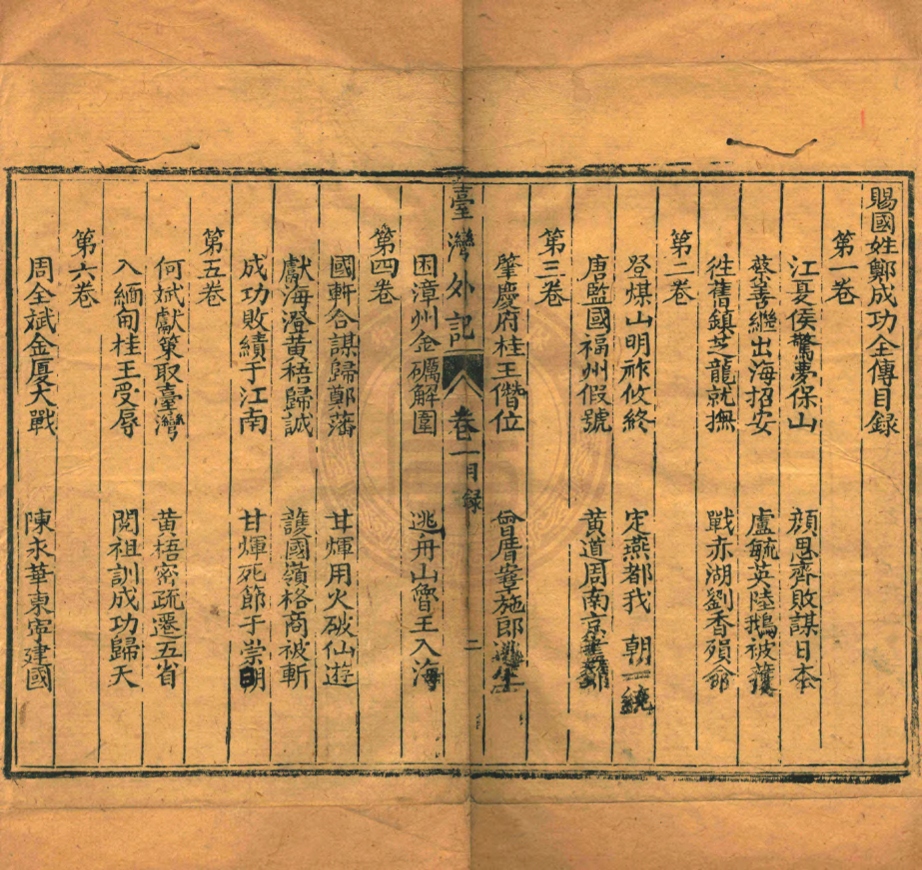 賜國姓鄭成功全傳目錄
第一卷
江夏侯驚夢保山 顏思齊敗謀日本
蔡善繼出海招安 盧毓英陸鵝被獲
徃舊鎮芝龍就撫 戰赤湖劉香殞命
第二卷
登煤山明祚攸終 定燕都我 朝一統
唐監國福州假號 黃道周南京
第三卷
肇慶府桂王僭位 曾厝垵施郎逃生
臺灣外記 卷一目録 二
困漳州金礪解圍 逃舟山魯王入海
第四卷
國軒合謀歸鄭藩 甘煇用火破仙遊
獻海澄黃梧歸誠 護國嶺格商被斬
成功敗績于江南 甘煇死節于崇明
第五卷
何斌獻策取臺灣 黃梧密疏遷五省
入緬甸桂王受辱 閱祖訓成功歸天
第六卷
周全斌金厦大戰 陳永華東寧建國